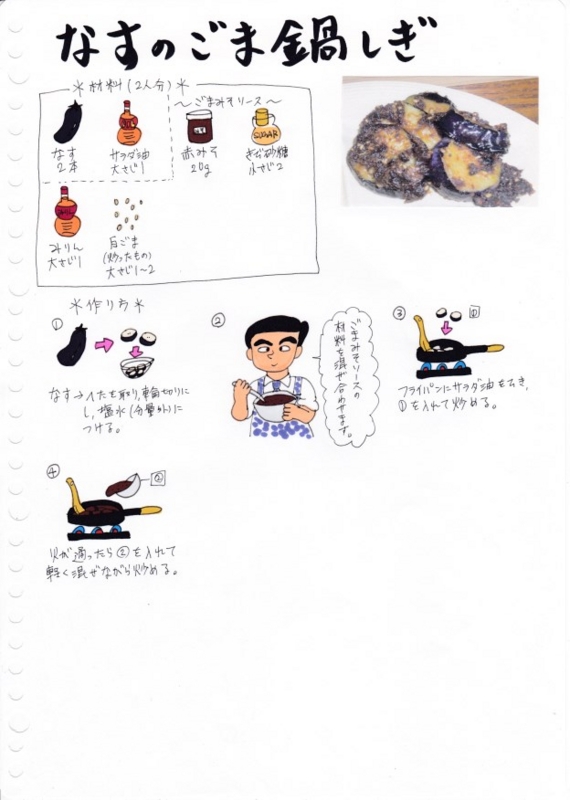 なすのごま鍋しぎ
＊材料（2人分）＊
〜ごまみそソース〜
なす
2本
サラダ油
大さじ1
赤みそ
20g
SUGAR
きび砂糖
小さじ2
みりん
大さじ1
白ごま
(炒ったもの)
大さじ1〜2
＊作り方＊
①
なす→ヘタを取り、輪切りに
し、塩水(分量外)に
つける。
②
ごまみそソースの
材料を混ぜ合わせます。
③
①
フライパンにサラダ油をひき、
①を入れて炒める。
④
②
火が通ったら②を入れて
軽く混ぜながら炒める。